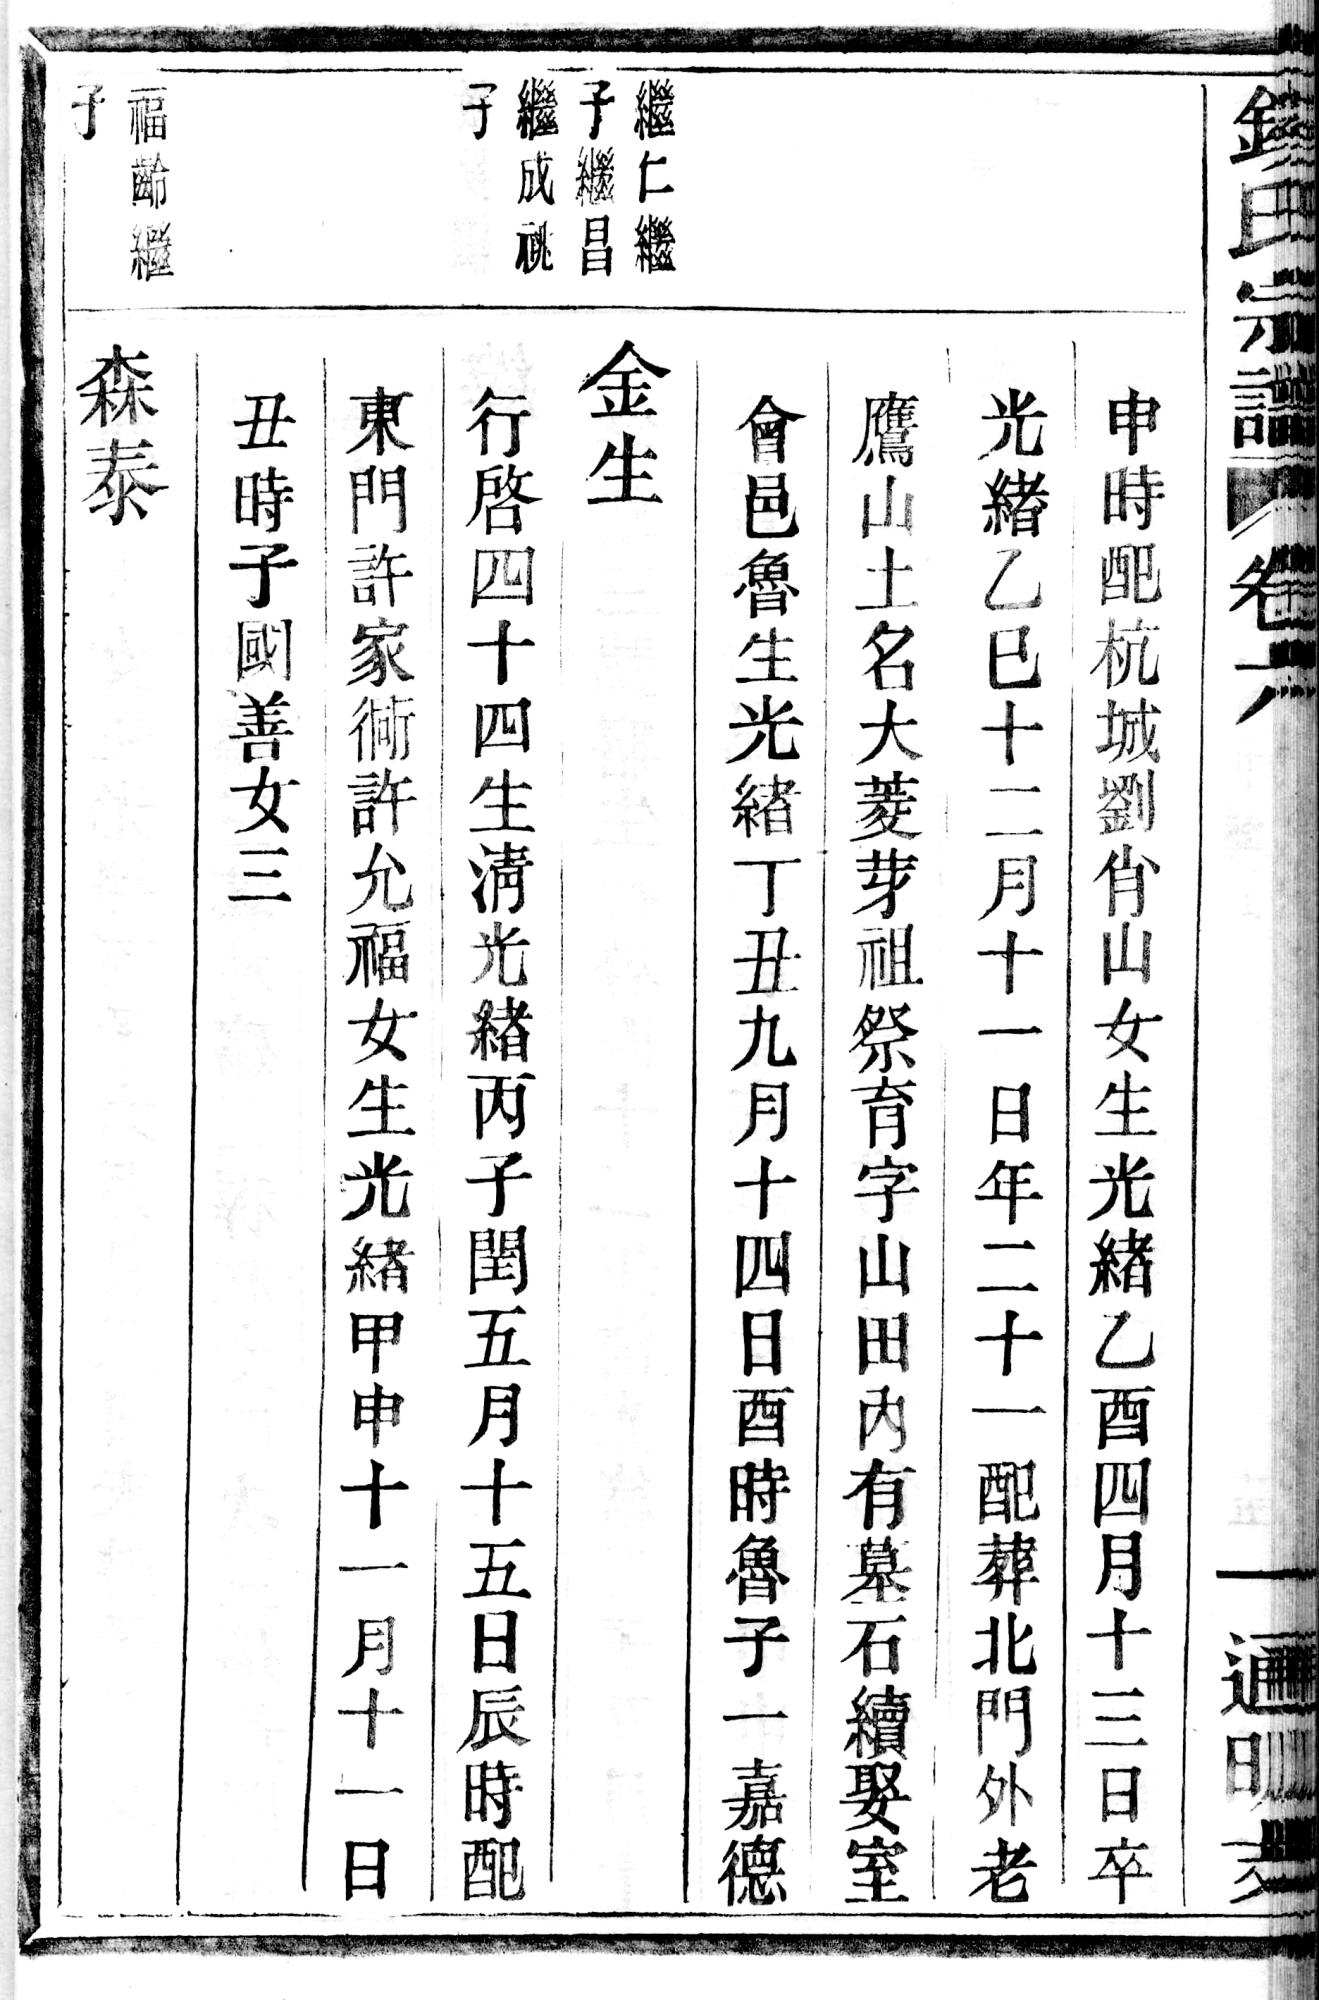 氏宗譜 卷六
申時配杭城劉肯山女生光緒乙酉四月十三日卒
光緒乙巳十二月十一日年二十一配葬北門外老
鷹山土名大菱芽祖祭育字山田內有墓石續娶室
會邑魯生光緒丁丑九月十四日酉時魯子一嘉德
繼仁繼
子繼昌
金生
繼成祧
子
行啓四十四生清光緒丙子閏五月十五日辰時配
東門許家衖許允福女生光緒甲申十一月十一日
丑時子國善女三
福齡繼
子
森泰
一 通明支